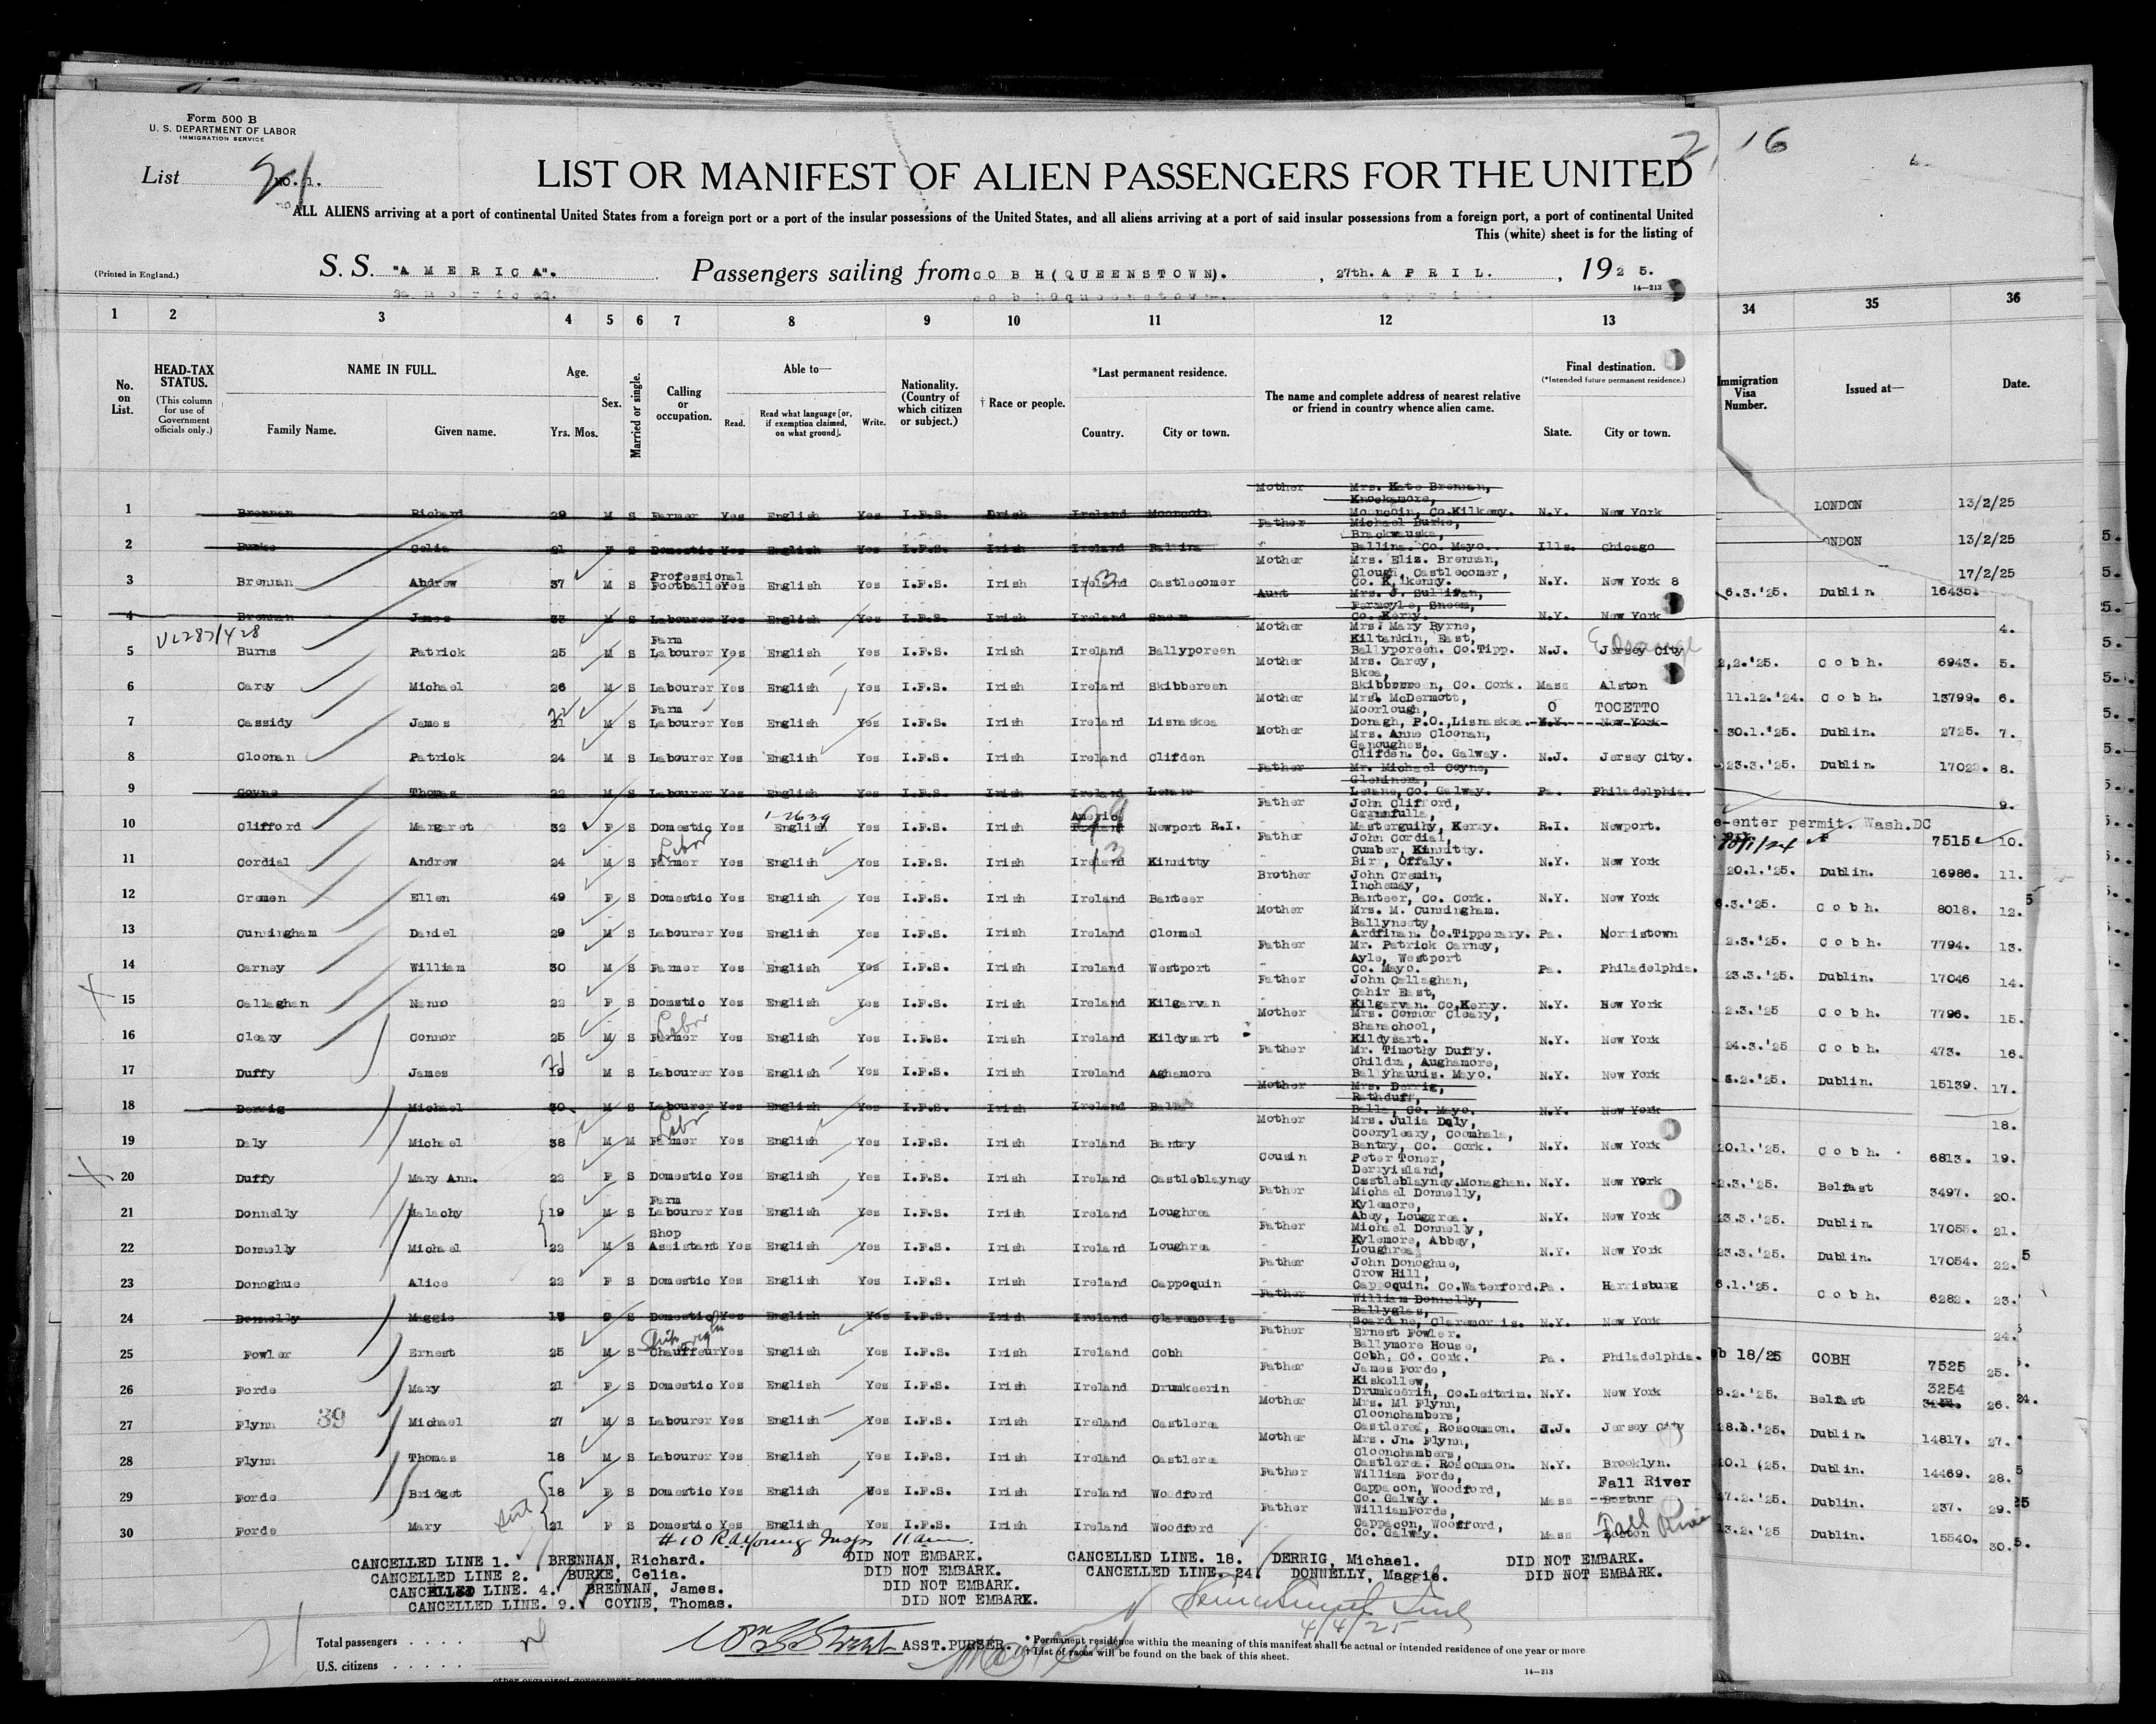 Form 500 B
U. S. DEPARTMENT OF LABOR
IMMIGRATION SERVICE
List No. 1.
2, 16
LIST OR MANIFEST OF ALIEN PASSENGERS FOR THE UNITED
ALL ALIENS arriving at a port of continental United States from a foreign port or a port of the insular possessions of the United States, and all aliens arriving at a port of said insular possessions from a foreign port, a port of continental United
This (white) sheet is for the listing of
(Printed in England.) S. S. "AMERICA". Passengers sailing from COBH (QUEENSTOWN). , 27th. APRIL. , 1925.
14—213
1 2 3 4 5 6 7 8 9 10 11 12 13 34 35 36
No. on List. HEAD-TAX STATUS. (This column for use of Government officials only.) NAME IN FULL. Family Name. Given name. Age. Yrs. Mos. Sex. Married or single. Calling or occupation. Able to— Read. Read what language [or, if exemption claimed, on what ground]. Write. Nationality. (Country of which citizen or subject.) † Race or people. *Last permanent residence. Country. City or town. The name and complete address of nearest relative or friend in country whence alien came. Final destination. (*Intended future permanent residence.) State. City or town. Immigration Visa Number. Issued at— Date.
1 Brennan Richard 29 M S Farmer Yes English Yes I.F.S. Irish Ireland Mooncoin Mother Mrs. Kate Brennan, Knockamore, Mooncoin, Co.Kilkeny. N.Y. New York LONDON 13/2/25
2 Burke Celia 21 F S Domestic Yes English Yes I.F.S. Irish Ireland Ballina Father Michael Burke, Ballina. Co. Mayo. Ills. Chicago ONDON 13/2/25
17/2/25
3 Brennan Andrew 37 M S Professional Footballer Yes English Yes I.F.S. Irish Ireland Castlecomer Mother Mrs. Eliz. Brennan, Clough, Castlecomer, Co. Kilkenny. N.Y. New York 8 6.3.'25. Dublin. 16435.
4 Brennan James 33 M S Labourer Yes English Yes I.F.S. Irish Ireland Sneem Aunt Mrs. J. Sullivan, Fermoyle, Sneem, Co. Kerry. N.Y. New York 4.
5 Burns Patrick 25 M S Farm Labourer Yes English Yes I.F.S. Irish Ireland Ballyporeen Mother Mrs. Mary Byrne, Kiltankin, East, Ballyporeen. Co.Tipp. N.J. Jersey City E Orange 2,2.'25. Cobh. 6943. 5.
6 Carey Michael 26 M S Labourer Yes English Yes I.F.S. Irish Ireland Skibbereen Mother Mrs. Carey, Skea, Skibbereen, Co. Cork. Mass Alston 11.12.'24. Cobh. 13799. 6.
7 Cassidy James 21 M S Farm Labourer Yes English Yes I.F.S. Irish Ireland Lisnaskea Mother Mrs. McDermott, Moorlough, Donagh, P.O.,Lisnaskea. N.Y. New York O TOCETTO 30.1.'25. Dublin. 2725. 7.
8 Cloonan Patrick 24 M S Labourer Yes English Yes I.F.S. Irish Ireland Clifden Mother Mrs. Anne Cloonan, Ganoughes, Clifden. Co. Galway. N.J. Jersey City. 23.3.'25. Dublin. 17022. 8.
9 Coyne Thomas 22 M S Labourer Yes English Yes I.F.S. Irish Ireland Lenane Father Mr. Michael Coyne, Lenane, Co. Galway. Pa. Philadelphia. 9.
10 Clifford Margaret 32 F S Domestic Yes English Yes I.F.S. Irish Newport R.I. Father John Clifford, Masterguihy, Kerry. R.I. Newport. e-enter permit. Wash.DC 7515 10.
11 Cordial Andrew 24 M S Farmer Labor Yes English Yes I.F.S. Irish Ireland Kinnitty Father John Cordial, Cumber, Kinnitty. Birr, Offaly. N.Y. New York 20.1.'25. Dublin. 16986. 11.
12 Cremen Ellen 49 F S Domestic Yes English Yes I.F.S. Irish Ireland Banteer Brother John Cremin, Inchemay, Banteer, Co. Cork. N.Y. New York 6.3.'25. Cobh. 8018. 12.
13 Cunningham Daniel 29 M S Labourer Yes English Yes I.F.S. Irish Ireland Clonmel Mother Mrs. M. Cunningham. Ballynesty, Ardfinan. Co.Tipperary. Pa. Morristown 2.3.'25. Cobh. 7794. 13.
14 Carney William 30 M S Farmer Yes English Yes I.F.S. Irish Ireland Westport Father Mr. Patrick Carney, Ayle, Westport Co. Mayo. Pa. Philadelphia. 23.3.'25. Dublin. 17046 14.
15 Callaghan Nanno 22 F S Domstic Yes English Yes I.F.S. Irish Ireland Kilgarvan Father John Callaghan, Cahir East, Kilgarvan. Co,Kerry. N.Y. New York 2.3.'25 Cobh. 7796. 15.
16 Cleary Connor 25 M S Farmer Labor Yes English Yes I.F.S. Irish Ireland Kildysart Mother Mrs. Connor Cleary, Shanachool, Kildysart. N.Y. New York 24.3.'25 Cobh. 473. 16.
17 Duffy James 19 21 M S Labourer Yes English Yes I.F.S. Irish Ireland Aghamore Father Mr. Timothy Duffy. Childra, Aughamore, Ballyhaunis. Mayo. N.Y. New York 3.2.'25. Dublin. 15139. 17.
18 Derrig Michael 30 M S Labourer Yes English Yes I.F.S. Irish Ireland Balla Mother Mrs. Derrig, Rathduff, Balla, Co. Mayo. N.Y. New York 18.
19 Daly Michael 38 M M Farmer Labor Yes English Yes I.F.S. Irish Ireland Bantry Mother Mrs. Julia Daly, Cooryleary, Coomhala, Bantry, Co. Cork. N.Y. New York 20.1.'25. Cobh. 6813. 19.
20 Duffy Mary Ann. 22 F S Domestic Yes English Yes I.F.S. Irish Ireland Castleblayney Cousin Peter Toner, Derryisland, Castleblayney.Monaghan. N.Y. New York 2.3.'25. Belfast 3497. 20.
21 Donnelly Malachy 19 M S Farm Labourer Yes English Yes I.F.S. Irish Ireland Loughrea Father Michael Donnelly, Kylemore, Abey, Louggrea. N.Y. New York 23.3.'25. Dublin. 17055. 21.
22 Donnelly Michael 22 M S Shop Assistant Yes English Yes I.F.S. Irish Ireland Loughrea Father Michael Donnelly, Kylemore, Abbey, Loughrea N.Y. New York 23.3.'25. Dublin. 17054. 22.
23 Donoghue Alice 22 F S Domestic Yes English Yes I.F.S. Irish Ireland Cappoquin Father John Donoghue, Crow Hill, Cappoquin. Co.Waterford. Pa. Harrisburg 6.1.'25. Cobh. 6282. 23.
24 Donnelly Maggie F S Domestic Yes English Yes I.F.S. Irish Ireland Claremorris Father William Donnelly, Ballyglas, Scardane, Claremoris. N.Y. New York 24.
25 Fowler Ernest 25 M S Chauffeur Yes English Yes I.F.S. Irish Ireland Cobh Father Ernest Fowler. Ballymore House, Cobh, Co. Cork. Pa. Philadelphia. b 18/25 COBH 7525 25.
26 Forde Mary 21 F S Domestic Yes English Yes I.F.S. Irish Ireland Drumkeerin Father James Forde, Kiskellew, Drumkeerin, Co.Leitrim. N.Y. New York 6.2.'25. Belfast 3254 26.
27 Flynn 39 Michael 27 M S Labourer Yes English Yes I.F.S. Irish Ireland Castlerea Mother Mrs. Ml Flynn, Cloonchambers, Castlerea, Roscommon. N.J. Jersey City 28.1.'25. Dublin. 14817. 27.
28 Flynn Thomas 18 M S Labourer Yes English Yes I.F.S. Irish Ireland Castlerea Mother Mrs. Jn. Flynn, Cloonchambers, Castlerea. Roscommon. N.Y. Brooklyn. 20.1.'25. Dublin. 14469. 28.
29 Forde Bridget 18 F S Domestic Yes English Yes I.F.S. Irish Ireland Woodford Father William Forde, Cappacon, Woodford, Co. Galway. Mass Boston Fall River 27.2.'25. Dublin. 237. 29.
30 Forde Mary 21 F S Domestic Yes English Yes I.F.S. Irish Ireland Woodford Father WilliamForde, Cappacon, Woofford, Co. Galway. Mass Boston Fall River 13.2.'25 Dublin. 15540. 30.
CANCELLED LINE 1. BRENNAN, Richard. DID NOT EMBARK. CANCELLED LINE. 18. DERRIG, Michael. DID NOT EMBARK.
CANCELLED LINE 2. BURKE, Celia. DID NOT EMBARK. CANCELLED LINE. 24. DONNELLY, Maggie. DID NOT EMBARK.
CANCELLED LINE. 4. BRENNAN, James. DID NOT EMBARK.
CANCELLED LINE. 9. COYNE, Thomas. DID NOT EMBARK.
4/4/25
Total passengers . . . .
ASST.PURSER.
* Permanent residence within the meaning of this manifest shall be actual or intended residence of one year or more
† List of races will be found on the back of this sheet.
U.S. citizens . . . . .
14—213